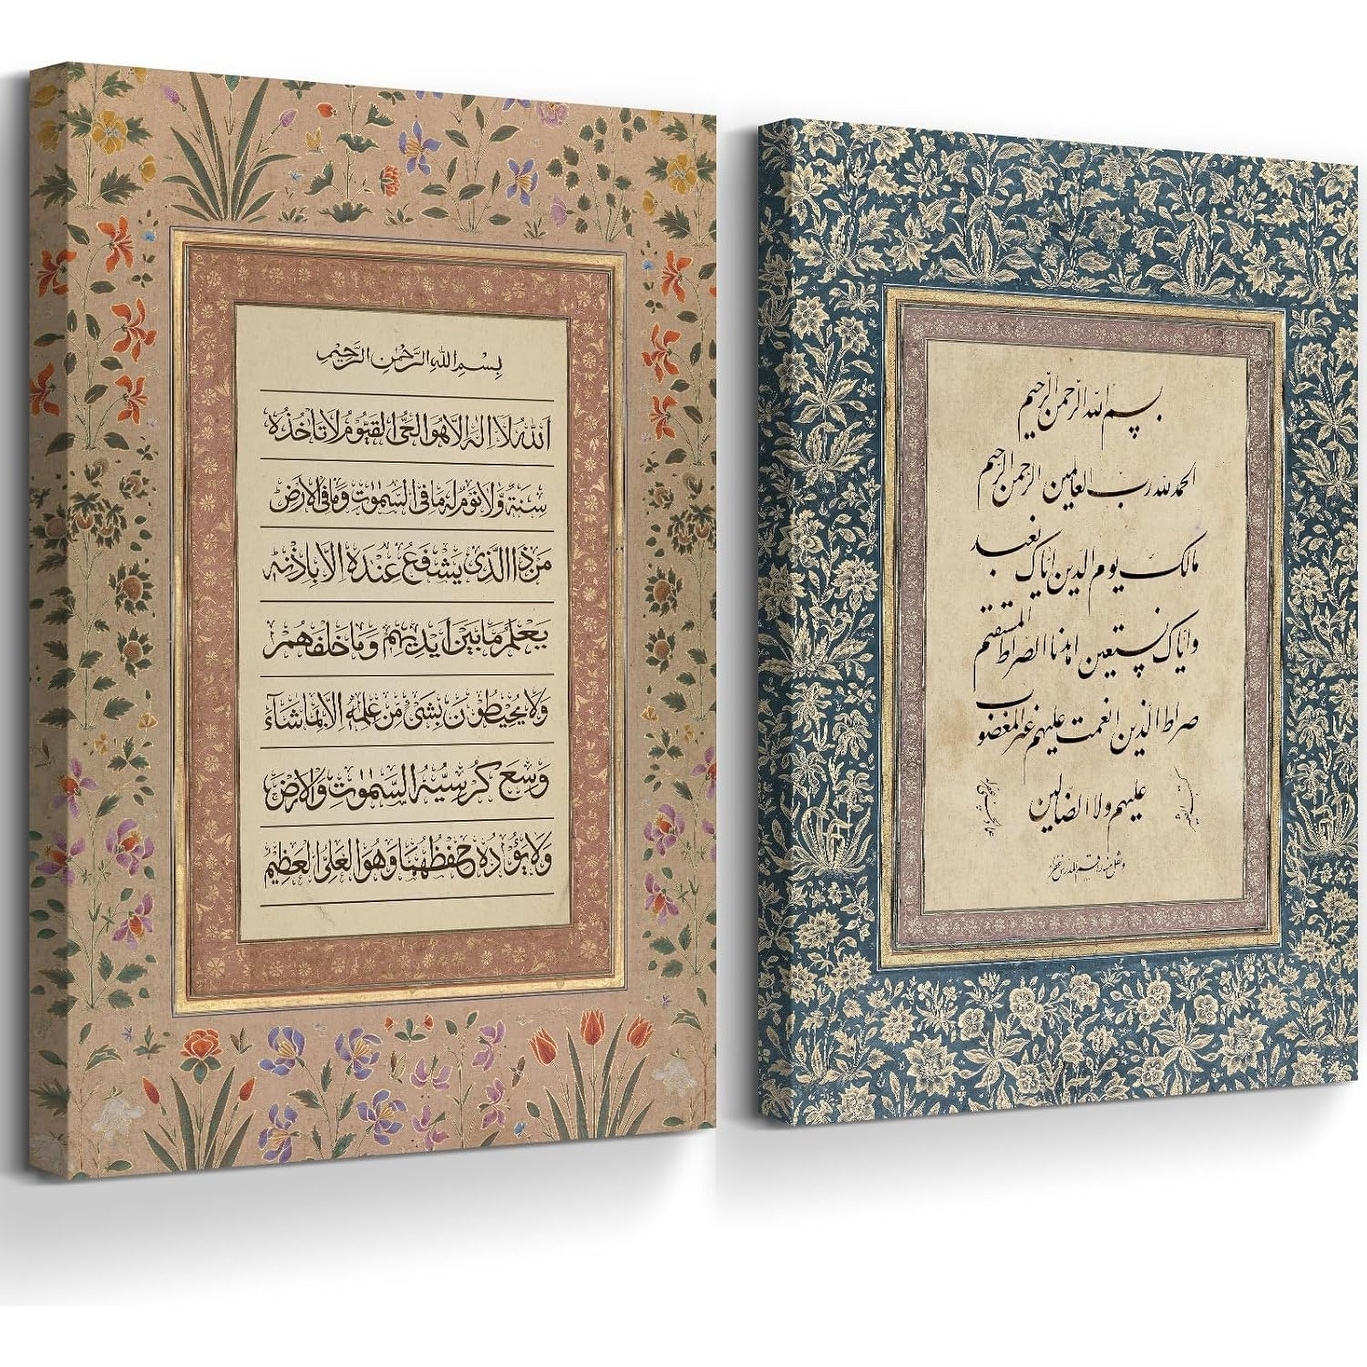 بِسْمِ اللهِ الرَّحْمٰنِ الرَّحِيْمِ
اَللهُ لَا اِلٰهَ اِلَّا هُوَ الْحَيُّ الْقَيُّوْمُ لَا تَأْخُذُهٗ
سِنَةٌ وَّلَا نَوْمٌ لَهٗ مَا فِی السَّمٰوٰتِ وَمَا فِی الْاَرْضِ
مَنْ ذَا الَّذِیْ يَشْفَعُ عِنْدَهٗ اِلَّا بِاِذْنِهٖ
يَعْلَمُ مَا بَيْنَ اَيْدِيْهِمْ وَمَا خَلْفَهُمْ
وَلَا يُحِيْطُوْنَ بِشَیْءٍ مِّنْ عِلْمِهٖ اِلَّا بِمَا شَآءَ
وَسِعَ كُرْسِيُّهُ السَّمٰوٰتِ وَالْاَرْضَ
وَلَا يَؤُدُهٗ حِفْظُهُمَا وَهُوَ الْعَلِیُّ الْعَظِيْمُ
بسم الله الرحمن الرحیم
الحمد لله رب العالمین الرحمن الرحیم
مالک یوم الدین ایاک نعبد
وایاک نستعین اهدنا الصراط المستقیم
صراط الذین انعمت علیهم غیر المغضوب
علیهم ولا الضالین